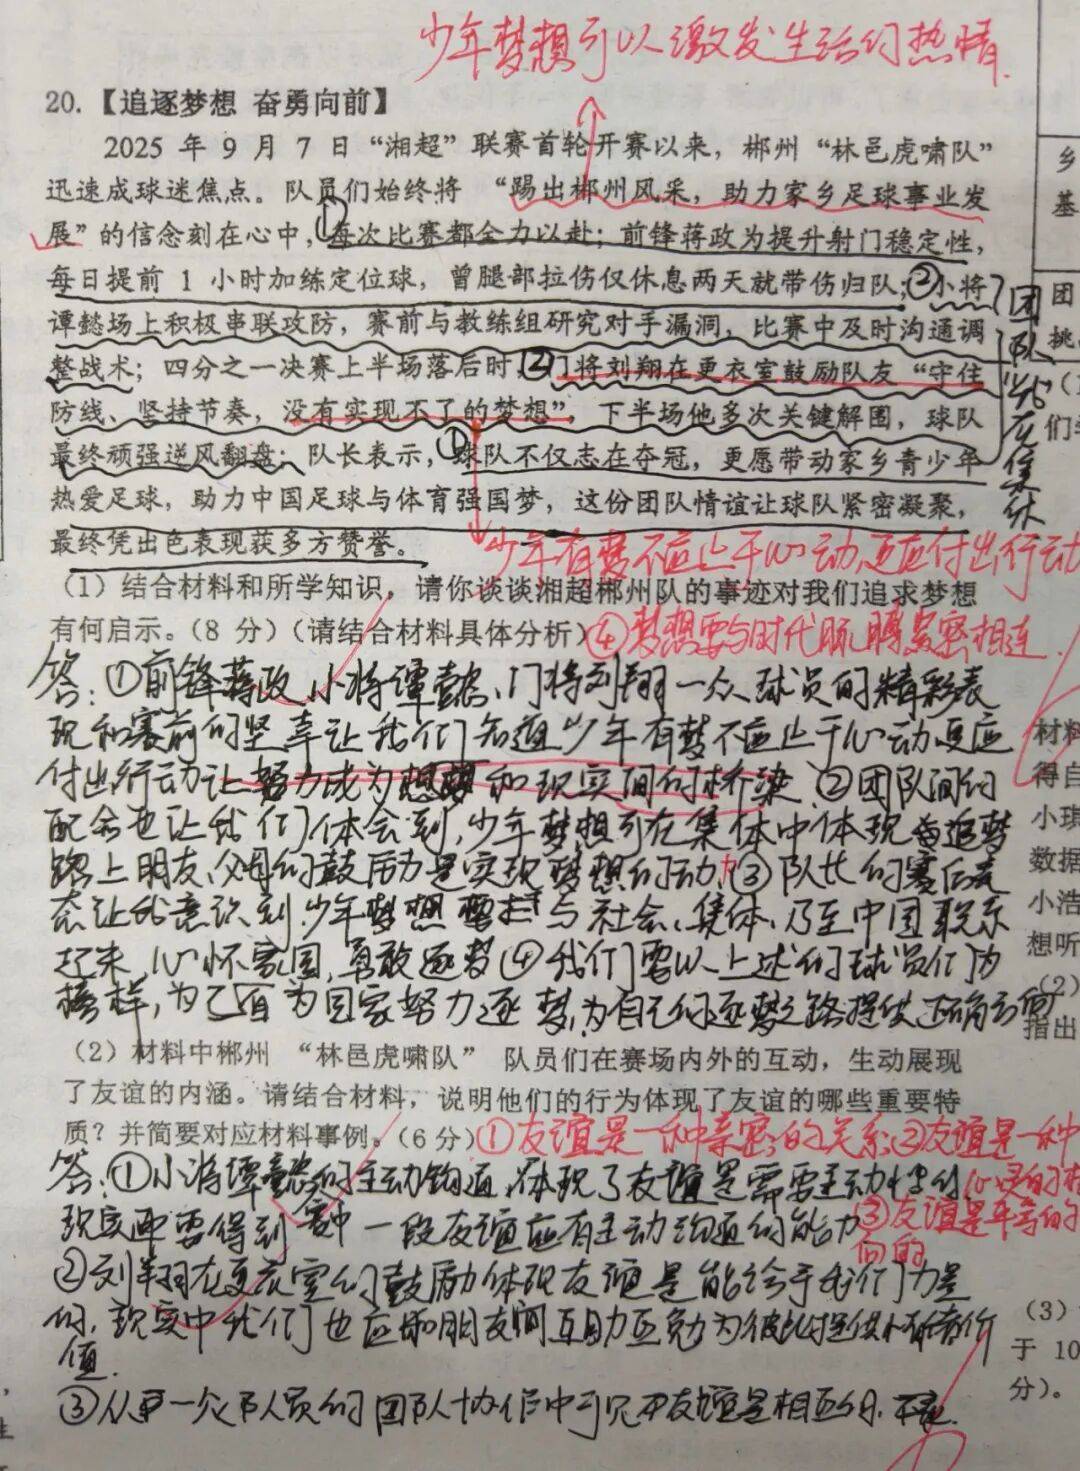 少年梦想可以激发生活的热情.
20.【追逐梦想 奋勇向前】
2025 年 9 月 7 日“湘超”联赛首轮开赛以来，郴州“林邑虎啸队”
迅速成球迷焦点。队员们始终将 “踢出郴州风采，助力家乡足球事业发
展”的信念刻在心中，①每次比赛都全力以赴；前锋蒋政为提升射门稳定性，
每日提前 1 小时加练定位球，曾腿部拉伤仅休息两天就带伤归队；②小将
谭懿场上积极串联攻防，赛前与教练组研究对手漏洞，比赛中及时沟通调
整战术；四分之一决赛上半场落后时，②门将刘翔在更衣室鼓励队友“守住
防线、坚持节奏，没有实现不了的梦想”，下半场他多次关键解围，球队
最终顽强逆风翻盘；队长表示，①球队不仅志在夺冠，更愿带动家乡青少年
热爱足球，助力中国足球与体育强国梦，这份团队情谊让球队紧密凝聚，
最终凭出色表现获多方赞誉。
团队 集体
少年有梦不应止于心动,更应付出行动
(1) 结合材料和所学知识，请你谈谈湘超郴州队的事迹对我们追求梦想
有何启示。(8 分)(请结合材料具体分析)
④梦想要与时代脉搏紧密相连.
答:①前锋蒋政、小将谭懿、门将刘翔一众球员的精彩表
现和赛前的坚幸让我们知道少年有梦不应止于心动更应
付出行动让努力成为想梦和现实间的桥梁.②团队间的
配合也让我们体会到,少年梦想可在集体中体现,追梦
路上朋友、父母的鼓励是实现梦想的动力③队长的赛后表
态让我意识到少年梦想要与社会、集体、乃至中国联系
起来,心怀家国,勇敢逐梦④我们要以上述的球员们为
榜样,为己为国家努力逐梦,为自己的逐梦之路提供正确方向
(2) 材料中郴州 “林邑虎啸队” 队员们在赛场内外的互动，生动展现
了友谊的内涵。请结合材料，说明他们的行为体现了友谊的哪些重要特
质？并简要对应材料事例。(6 分)
①友谊是一种亲密的关系②友谊是一种
心灵的
③友谊是平等的
向的
答:①小将谭懿的主动沟通,体现了友谊是需要主动
现实中一段友谊应有主动沟通的能力
②刘翔在更衣室的鼓励体现友谊是能给予我们力量
的,现实中我们也应和朋友间互助互勉为彼此提供
值.
③从一众队员的团队协作中可见友谊是相互的.
乡
基
团
挑
们
材料
得自
小琪
数据
小浩
想听
(2)
指出
(3)
于 10
分)。